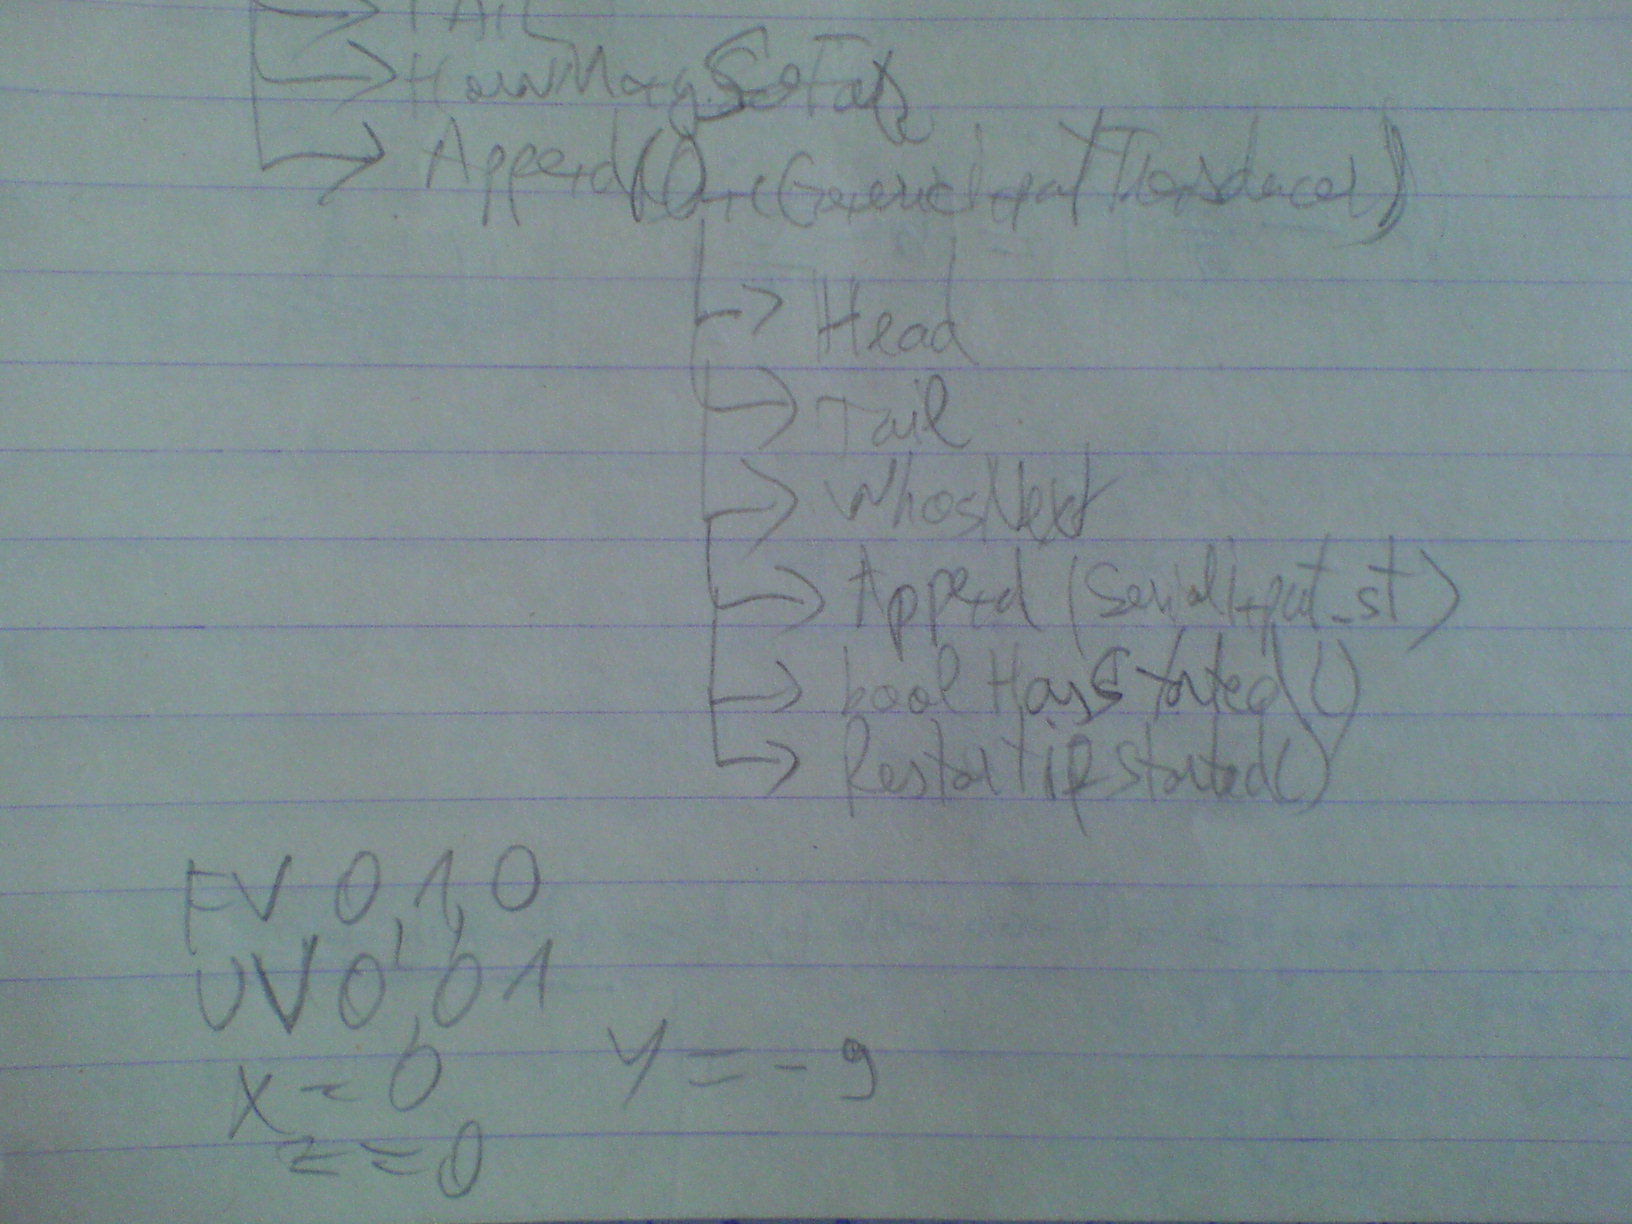 TAIL
HowManySoFar
Append(OneGenericInputTransducer)
Head
Tail
WhosNext
Append (SerialInput_st)
bool HasStarted()
RestartifStarted()
FV 0,1,0
UV 0,0 1
X = 0 Y = - 9
z = 0